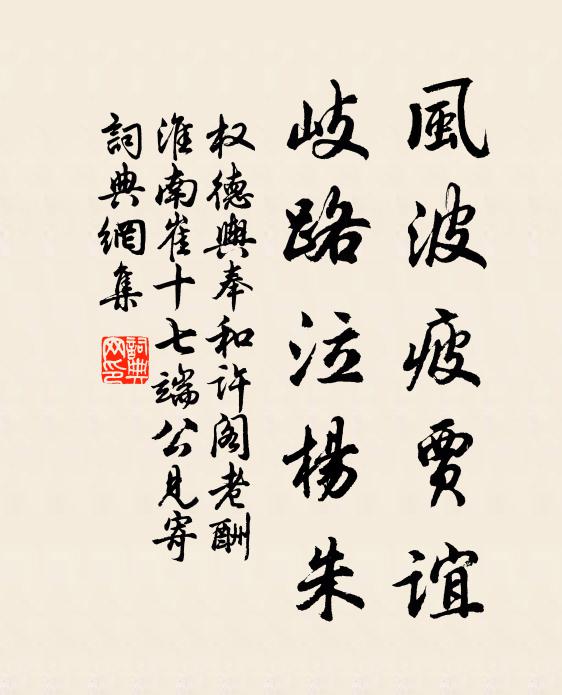 風波疲賈誼
岐路泣楊朱
权德輿奉和许阁老酬
淮南崔十七端公見寄
詞典網集
詞典
网印